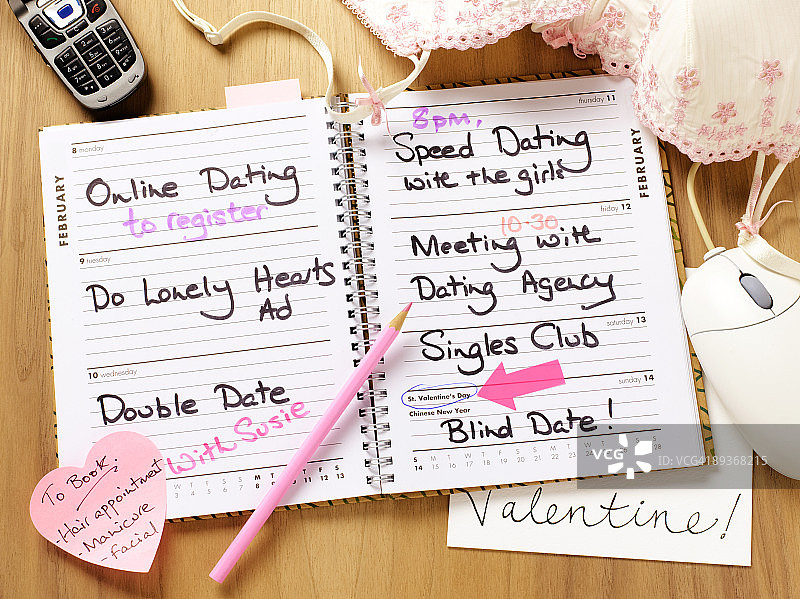 8 monday
FEBRUARY
Online Dating
to register
9 tuesday
Do Lonely Hearts
Ad
10 wednesday
Double Date
With Susie
M T W T F S S M T W T F S
3 4 5 6 7 8 9 10 11 12 13
thursday 11
FEBRUARY
8pm,
Speed Dating
with the girls
friday 12
10-30
Meeting with
Dating Agency
saturday 13
Singles Club
sunday 14
St. Valentine's Day
Chinese New Year
Blind Date!
S M T W T F S S
14 15 16 17 18 19 20 21 28
To Book:
-Hair appointment
-Manicure
-Facial
Valentine!
VCG
VCG41N89368215